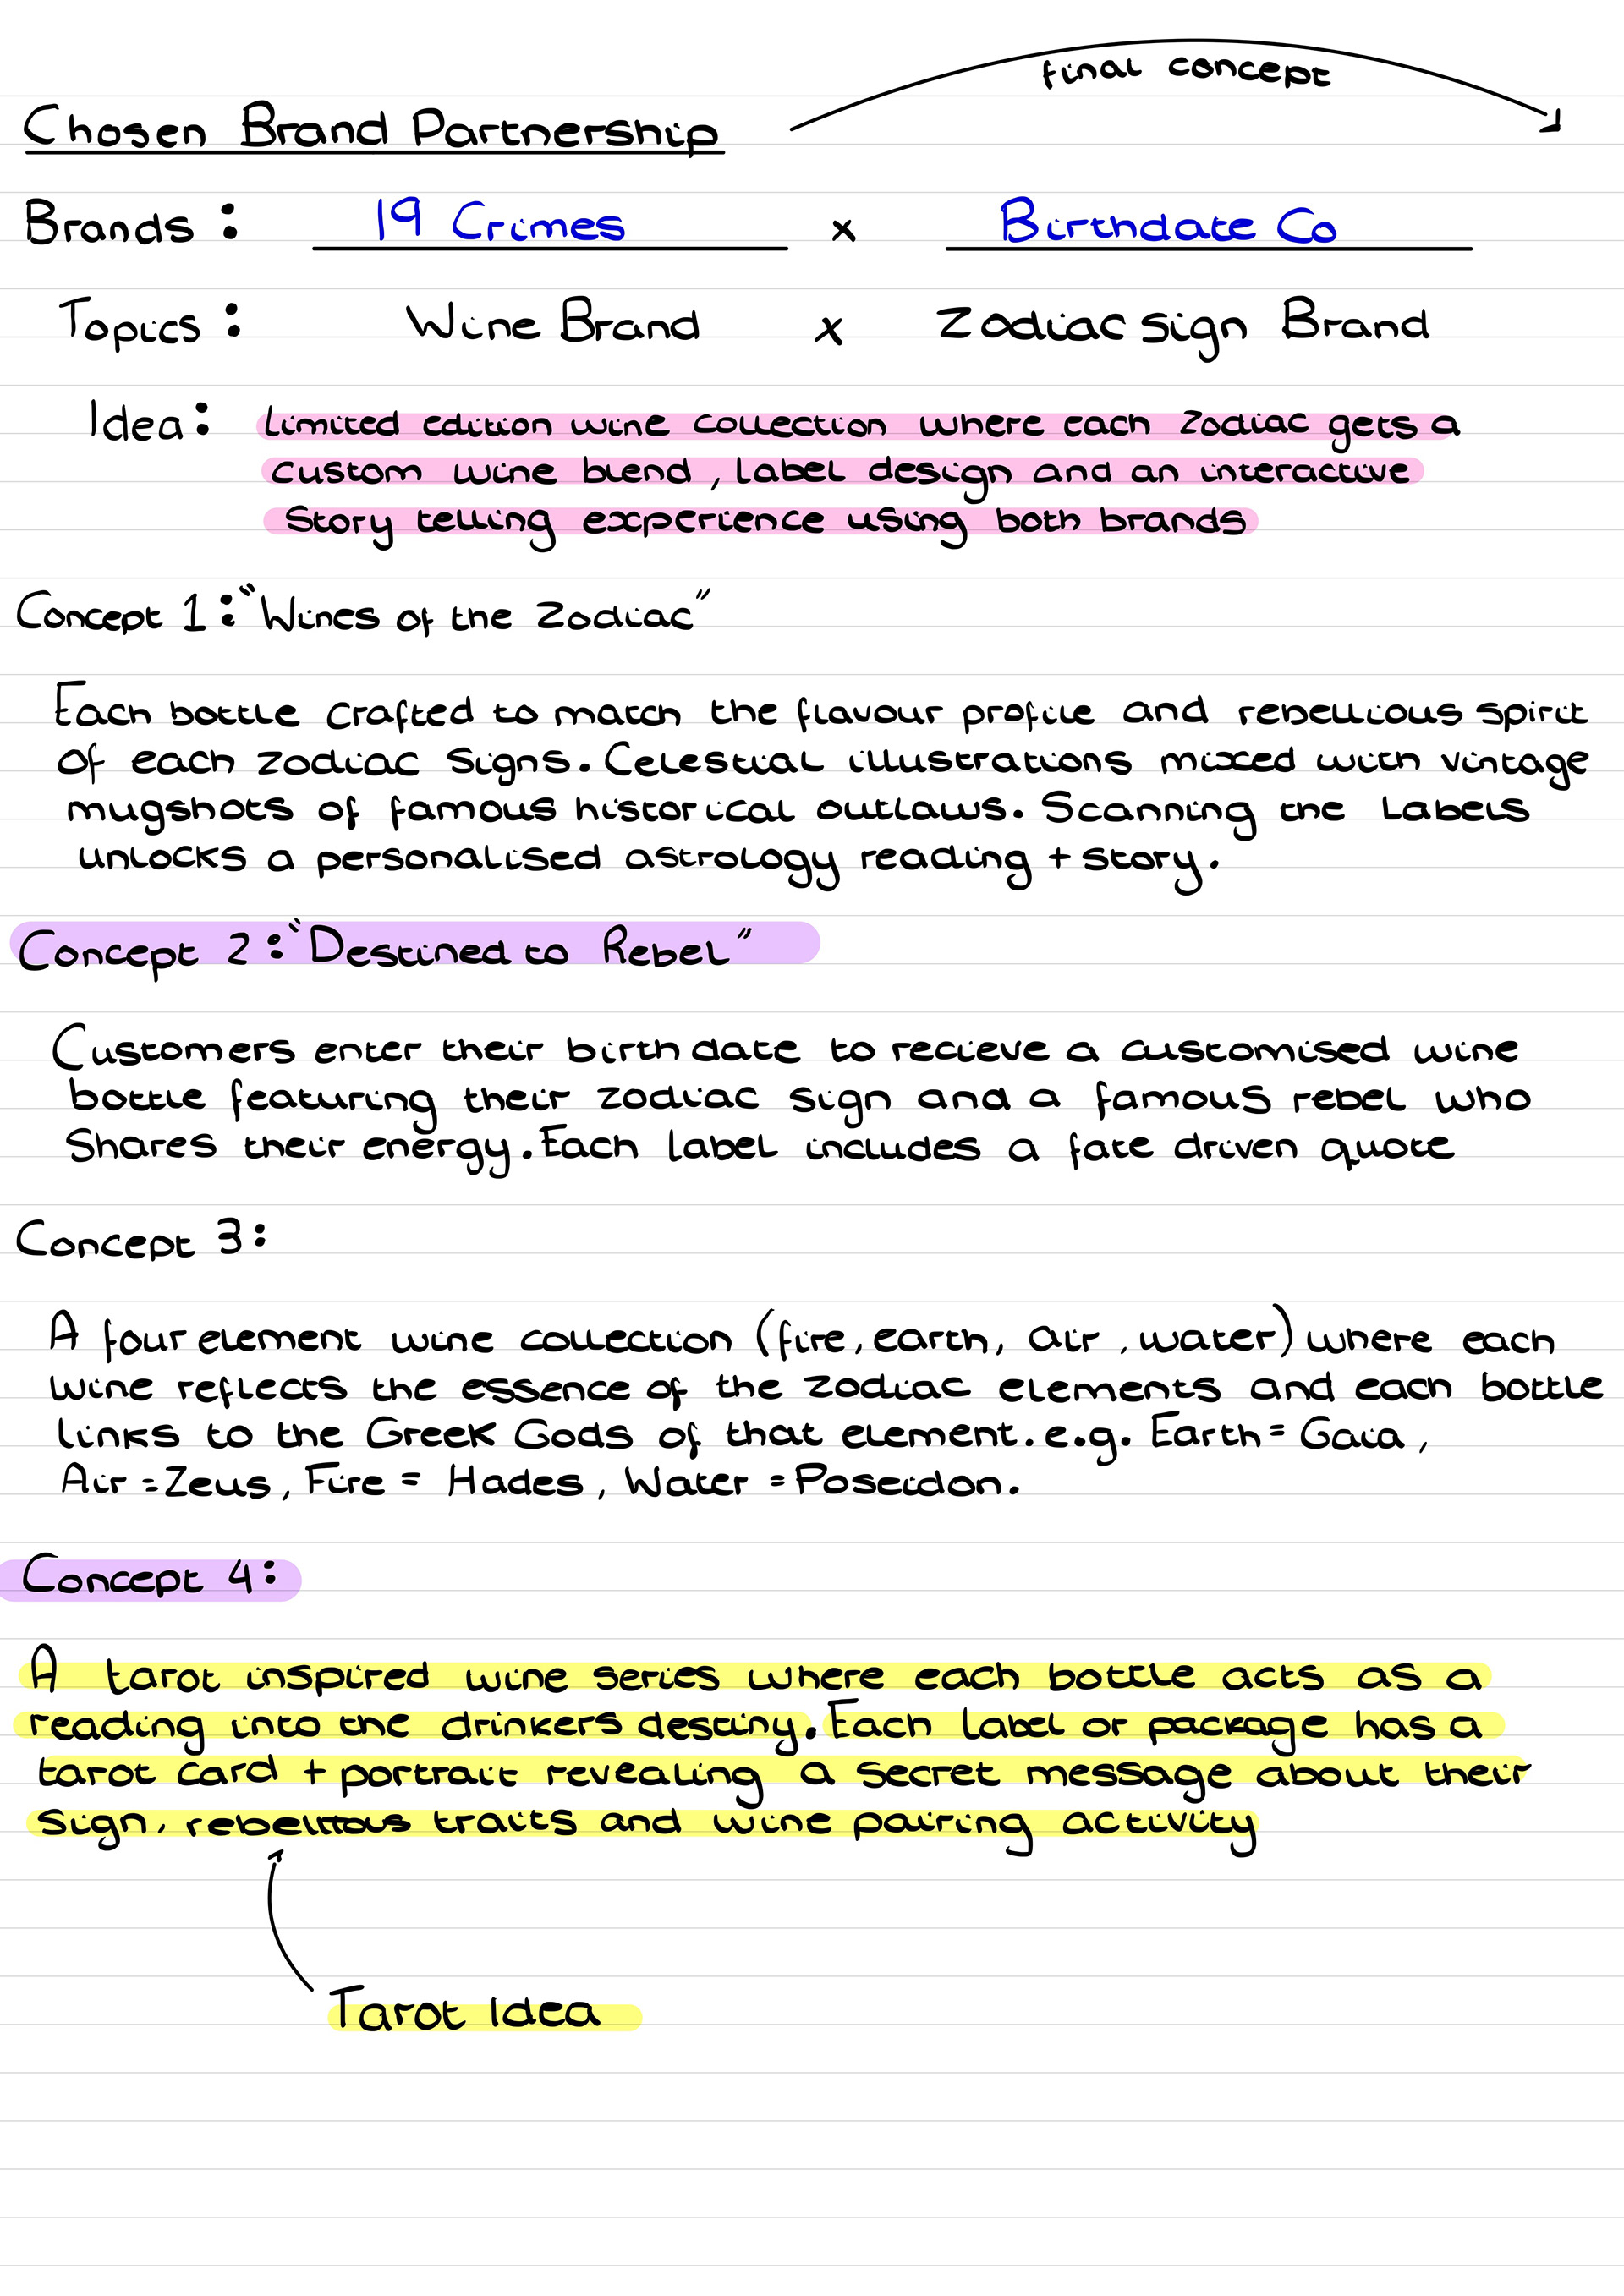 final concept
Chosen Brand Partnership
Brands : 19 Crimes x Birthdate Co
Topics : Wine Brand x Zodiac sign Brand
Idea : Limited edition wine collection where each zodiac gets a
custom wine blend , label design and an interactive
Story telling experience using both brands
Concept 1 : "Wines of the Zodiac"
Each bottle crafted to match the flavour profile and rebellious spirit
of each zodiac signs. Celestial illustrations mixed with vintage
mugshots of famous historical outlaws. Scanning the Labels
unlocks a personalised astrology reading + story.
Concept 2 : "Destined to Rebel"
Customers enter their birth date to recieve a customised wine
bottle featuring their zodiac sign and a famous rebel who
Shares their energy. Each label includes a fate driven quote
Concept 3 :
A four element wine collection (fire, earth, air , water) where each
wine reflects the essence of the zodiac elements and each bottle
links to the Greek Gods of that element. e.g. Earth = Gaia ,
Air = Zeus , Fire = Hades , Water = Poseidon.
Concept 4 :
A tarot inspired wine series where each bottle acts as a
reading into the drinkers destiny. Each label or package has a
tarot card + portrait revealing a secret message about their
Sign, rebellious traits and wine pairing activity
Tarot Idea